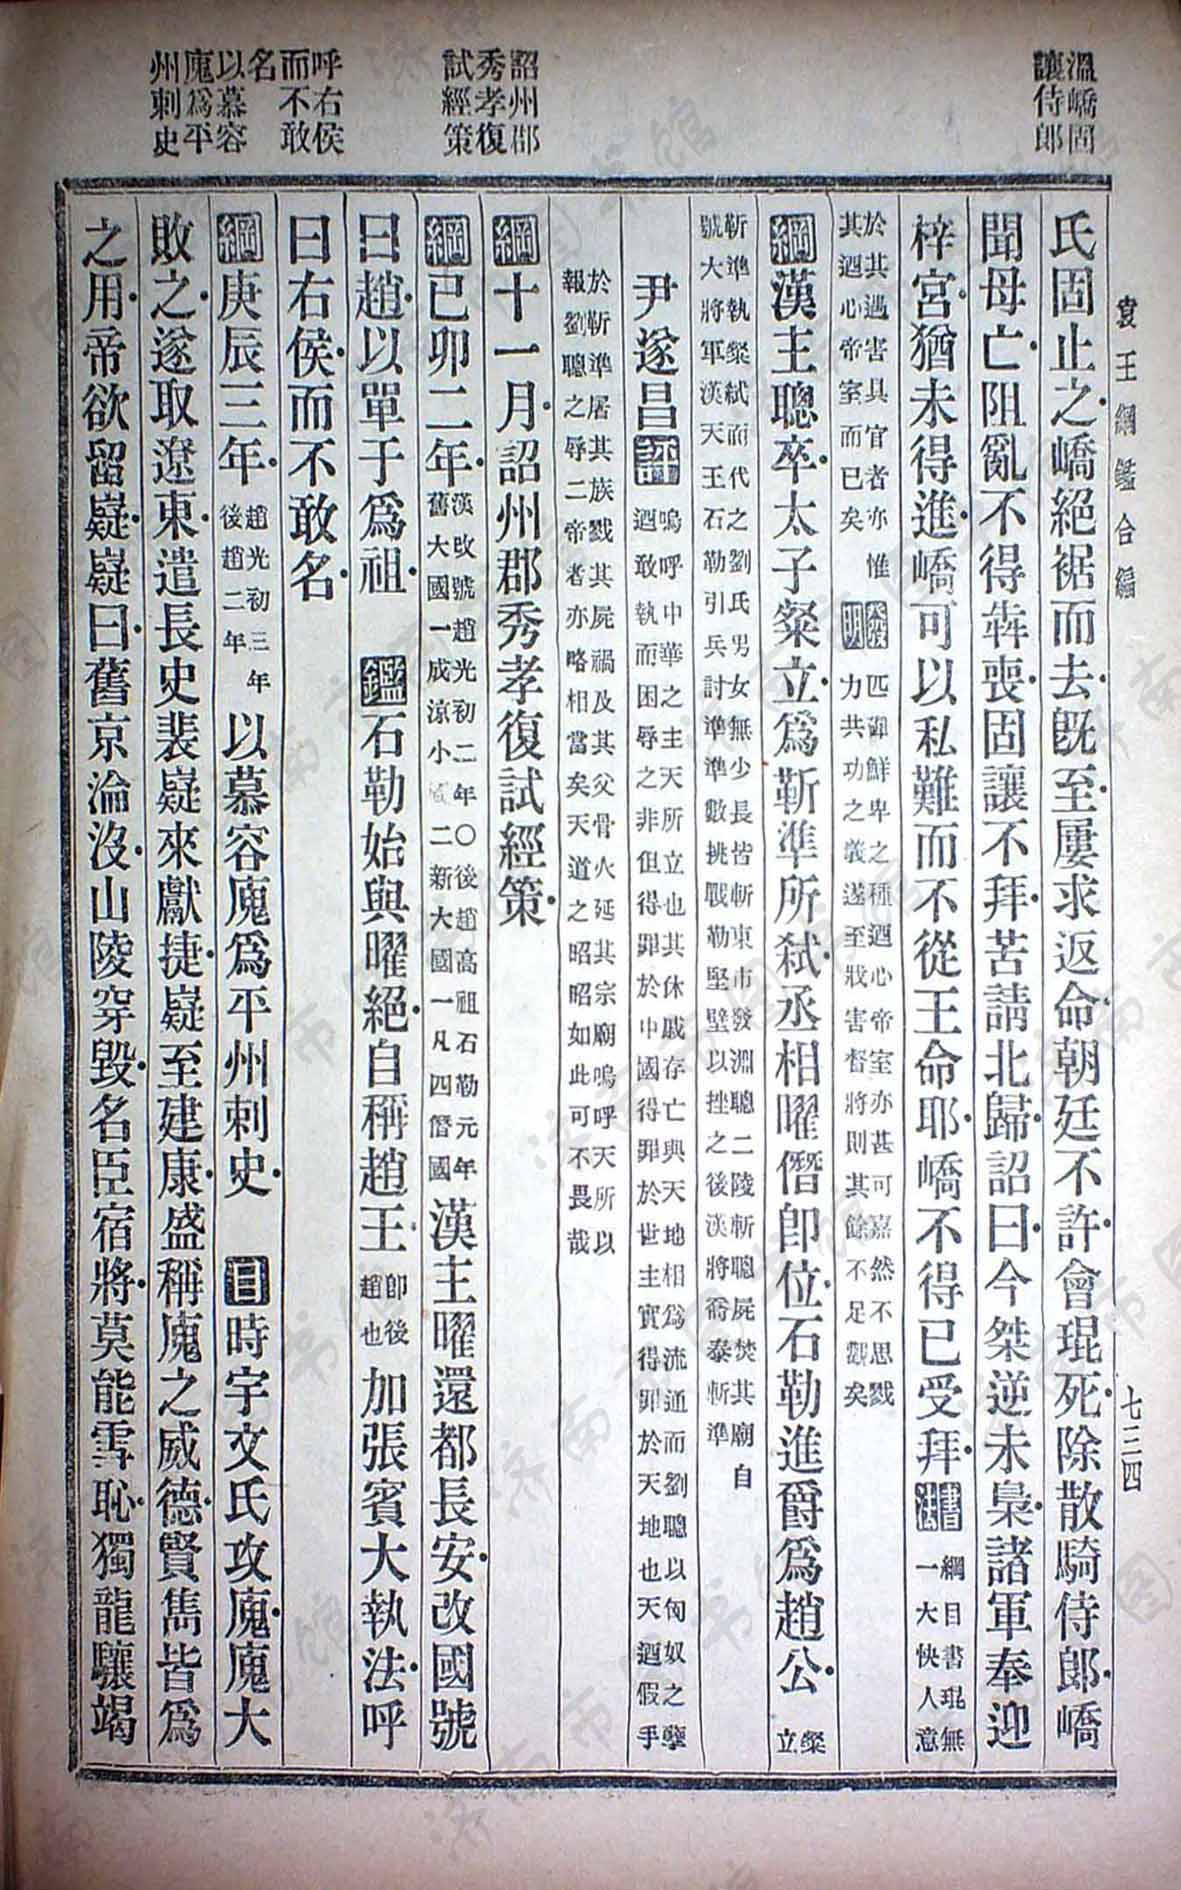 溫嶠固
讓侍郎
詔州郡
秀孝復
試經策
呼右侯
而不敢
名
以慕容
廆爲平
州刺史
袁王綱鑑合編
七三四
氏固止之嶠絕裾而去旣至屢求返命朝廷不許會琨死除散騎侍郎嶠
聞母亡阻亂不得犇喪固讓不拜苦請北歸詔曰今桀逆未梟諸軍奉迎
梓宮猶未得進嶠可以私難而不從王命耶嶠不得已受拜書法綱目書琨無
一大快人意
於其遇害具官者亦惟
其迺心帝室而已矣
發明匹磾鮮卑之種迺心帝室亦甚可嘉然不思戮
力共功之義遂至戕害督將則其餘不足觀矣
綱漢主聰卒太子粲立爲靳準所弒丞相曜僭卽位石勒進爵爲趙公粲
立
靳準執粲弒而代之劉氏男女無少長皆斬東市發淵聰二陵斬聰屍焚其廟自
號大將軍漢天王石勒引兵討準準數挑戰勒堅壁以挫之後漢將喬泰斬準
尹遂昌評嗚呼中華之主天所立也其休戚存亡與天地相爲流通而劉聰以匈奴之孽
迺敢執而困辱之非但得罪於中國得罪於世主實得罪於天地也天迺假手
於靳準屠其族戮其屍禍及其父骨火延其宗廟嗚呼天所以
報劉聰之辱二帝者亦略相當矣天道之昭昭如此可不畏哉
綱十一月詔州郡秀孝復試經策
綱已卯二年漢改號趙光初二年〇後趙高祖石勒元年
舊大國一成涼小二新大國一凡四僭國
漢主曜還都長安改國號
曰趙以單于爲祖 鑑石勒始與曜絕自稱趙王卽後
趙也
加張賓大執法呼
曰右侯而不敢名
綱庚辰三年趙光初三年
後趙二年
以慕容廆爲平州刺史 目時宇文氏攻廆廆大
敗之遂取遼東遣長史裴嶷來獻捷嶷至建康盛稱廆之威德賢雋皆爲
之用帝欲留嶷嶷曰舊京淪沒山陵穿毀名臣宿將莫能雪恥獨龍驤竭